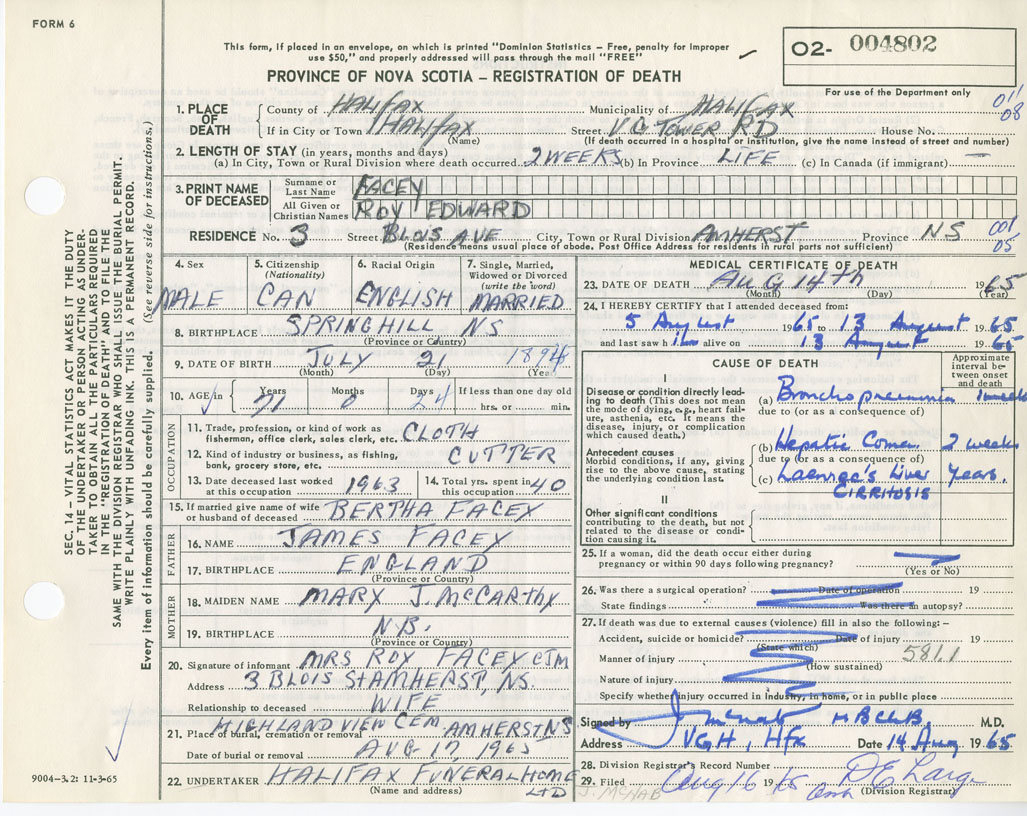 FORM 6
This form, if placed in an envelope, on which is printed "Dominion Statistics – Free, penalty for improper
use $50," and properly addressed will pass through the mail "FREE"
O2- 004802
For use of the Department only
PROVINCE OF NOVA SCOTIA – REGISTRATION OF DEATH
011
08
1. PLACE OF DEATH
County of HALIFAX Municipality of HALIFAX
If in City or Town HALIFAX Street VG TOWER RD House No.
(Name) (If death occurred in a hospital or institution, give the name instead of street and number)
2. LENGTH OF STAY (in years, months and days)
(a) In City, Town or Rural Division where death occurred 2 WEEKS (b) In Province LIFE (c) In Canada (if immigrant) —
3. PRINT NAME OF DECEASED
Surname or Last Name FACEY
All Given or Christian Names ROY EDWARD
RESIDENCE No. 3 Street BLOIS AVE City, Town or Rural Division AMHERST Province NS
(Residence means usual place of abode. Post Office Address for residents in rural parts not sufficient)
001
05
SEC. 14 – VITAL STATISTICS ACT MAKES IT THE DUTY
OF THE UNDERTAKER OR PERSON ACTING AS UNDER-
TAKER TO OBTAIN ALL THE PARTICULARS REQUIRED
IN THE "REGISTRATION OF DEATH" AND TO FILE THE
SAME WITH THE DIVISION REGISTRAR WHO SHALL ISSUE THE BURIAL PERMIT.
WRITE PLAINLY WITH UNFADING INK. THIS IS A PERMANENT RECORD.
Every item of information should be carefully supplied. (See reverse side for instructions.)
4. Sex MALE
5. Citizenship (Nationality) CAN
6. Racial Origin ENGLISH
7. Single, Married, Widowed or Divorced (write the word) MARRIED
8. BIRTHPLACE SPRINGHILL NS
(Province or Country)
9. DATE OF BIRTH JULY 21 1894
(Month) (Day) (Year)
10. AGE in Years 71 Months 0 Days 24 If less than one day old
hrs. or min.
OCCUPATION
11. Trade, profession, or kind of work as
fisherman, office clerk, sales clerk, etc. CLOTH
12. Kind of industry or business, as fishing,
bank, grocery store, etc. CUTTER
13. Date deceased last worked at this occupation 1963
14. Total yrs. spent in this occupation 40
15. If married give name of wife
or husband of deceased BERTHA FACEY
FATHER
16. NAME JAMES FACEY
17. BIRTHPLACE ENGLAND
(Province or Country)
MOTHER
18. MAIDEN NAME MARY J. McCARTHY
19. BIRTHPLACE N.B.
(Province or Country)
20. Signature of informant MRS ROY FACEY CJM
Address 3 BLOIS ST AMHERST, NS.
Relationship to deceased WIFE
21. Place of burial, cremation or removal HIGHLAND VIEW CEM. AMHERST NS
Date of burial or removal AUG 17, 1965
22. UNDERTAKER HALIFAX FUNERAL HOME LTD
(Name and address)
9004-3.2: 11-3-65
MEDICAL CERTIFICATE OF DEATH
23. DATE OF DEATH AUG 14th 1965
(Month) (Day) (Year)
24. I HEREBY CERTIFY that I attended deceased from:
5 August 1965 to 13 August 1965
and last saw him alive on 13 August 1965
CAUSE OF DEATH
Approximate interval between onset and death
I
Disease or condition directly lead-
ing to death (This does not mean
the mode of dying, e.g., heart fail-
ure, asthenia, etc. It means the
disease, injury, or complication
which caused death.)
(a) Bronchopneumonia 1 week
due to (or as a consequence of)
Antecedent causes
Morbid conditions, if any, giving
rise to the above cause, stating
the underlying condition last.
(b) Hepatic Coma 2 weeks
due to (or as a consequence of)
(c) Laennec's Liver Years.
CIRRHOSIS
II
Other significant conditions
contributing to the death, but not
related to the disease or condi-
tion causing it.
25. If a woman, did the death occur either during
pregnancy or within 90 days following pregnancy?
(Yes or No)
26. Was there a surgical operation? Date of operation 19
State findings Was there an autopsy?
27. If death was due to external causes (violence) fill in also the following:–
Accident, suicide or homicide? Date of injury 19
(State which) 581.1
Manner of injury
(How sustained)
Nature of injury
Specify whether injury occurred in industry, in home, or in public place
Signed by J McNab MBChB M.D.
Address VGH, Hfx Date 14 Aug 1965
28. Division Registrar's Record Number
29. Filed Aug 16 1965 D E Large
J. MCNAB (Division Registrar)